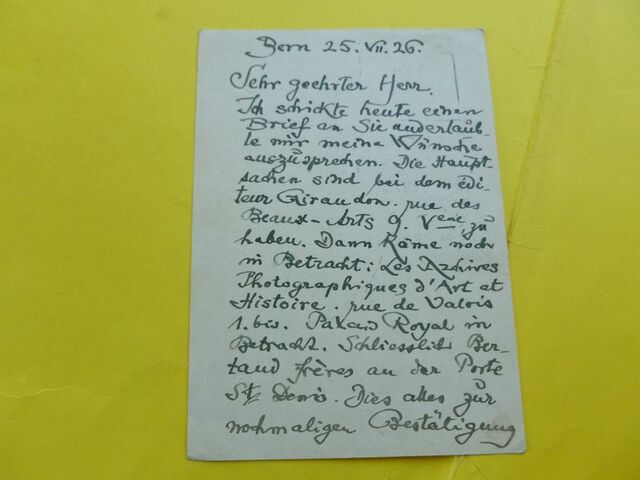 Bern 25. VII. 26.
Sehr geehrter Herr.
Ich schickte heute einen
Brief an Sie und erlaub-
te mir meine Wünsche
auszusprechen. Die Haupt-
sachen sind bei dem Edi-
teur Giraudon. rue des
Beaux-Arts 9. zu
haben. Dann käme noch
in Betracht: Les Archives
Photographiques d'Art et
Histoire. rue de Valois
1. bis. Palais Royal in
Betracht. Schliesslich Ber-
taud frères an der Porte
St. Denis. Dies alles zur
nochmaligen Bestätigung